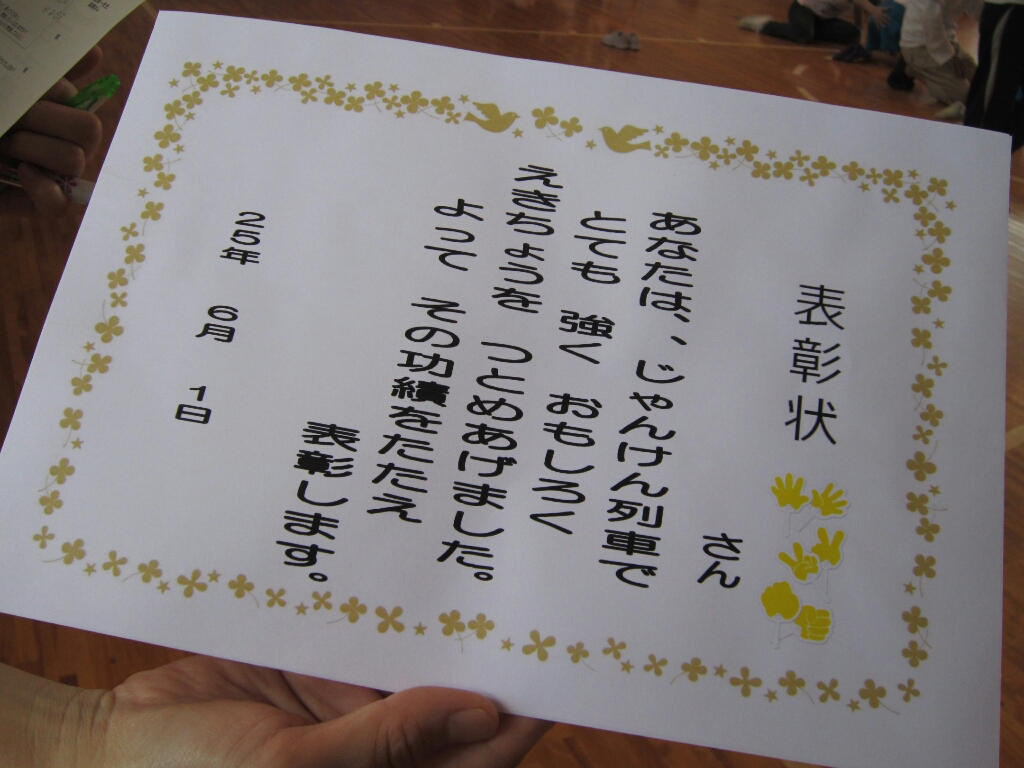 表彰状
さん
あなたは、、じゃんけん列車で
とても 強く おもしろく
えきちょうを つとめあげました。
よって その功績をたたえ
表彰します。
25年 6月 1日